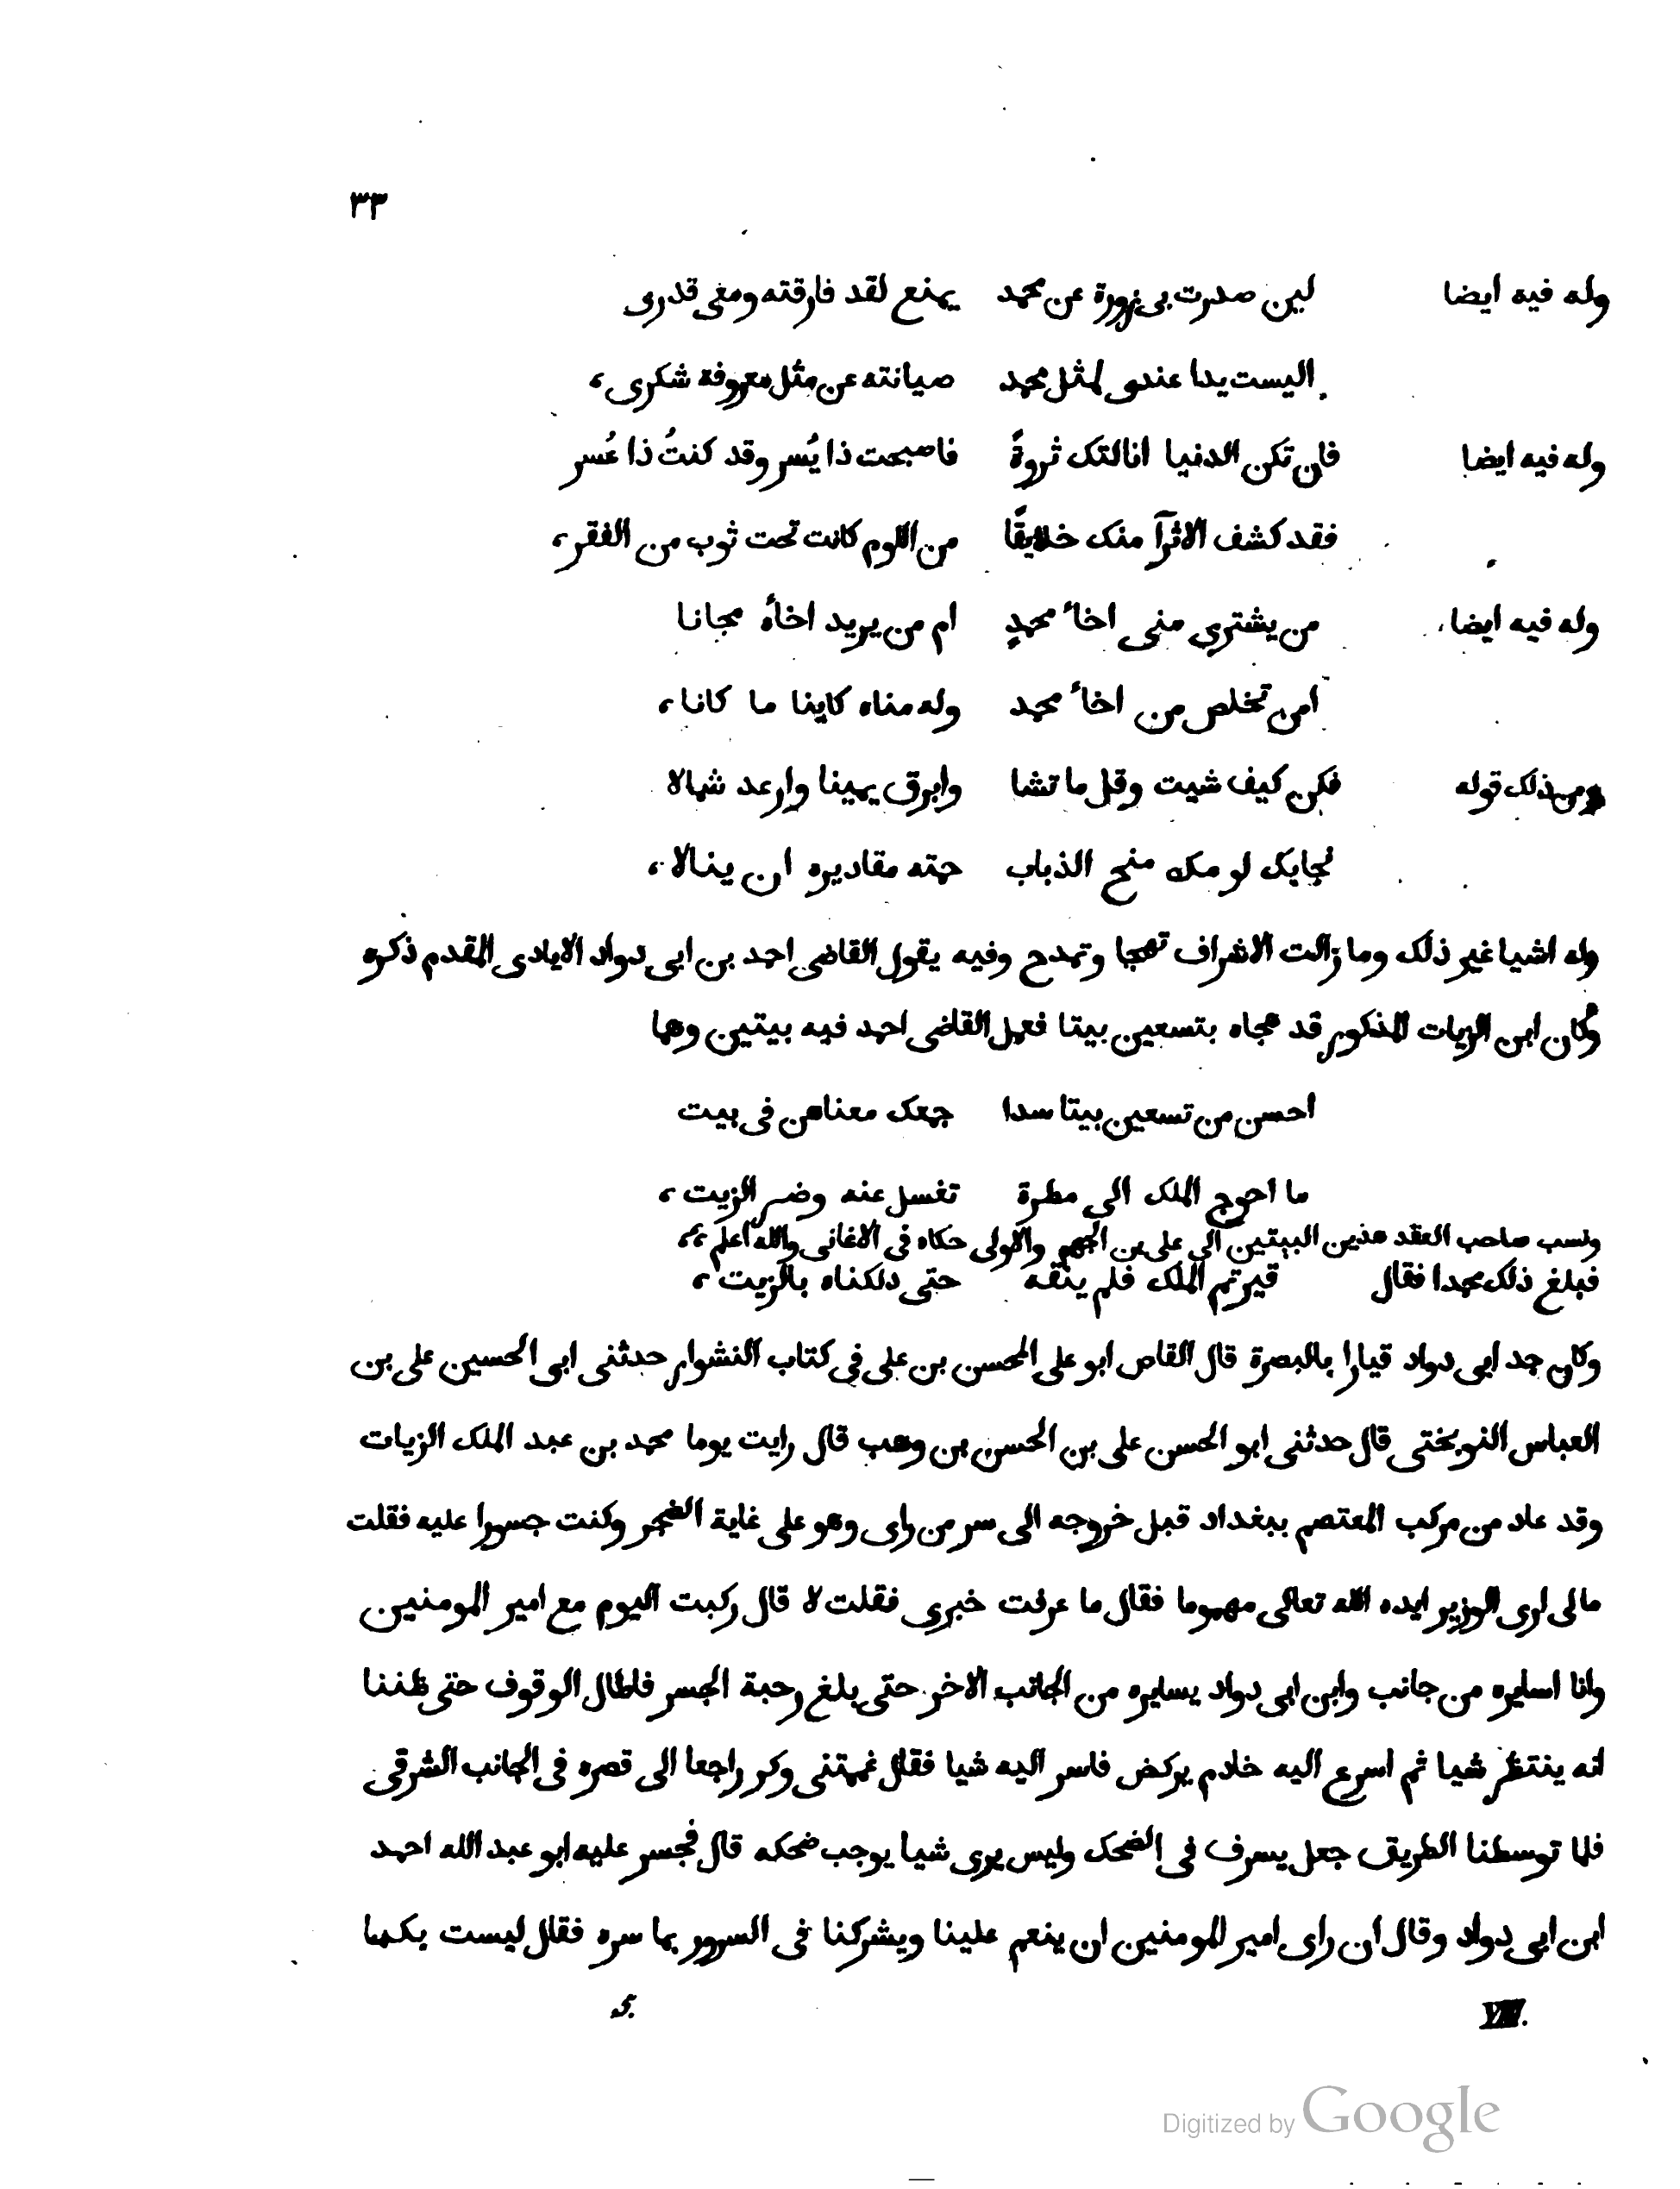 ٣٣
وله فيه ايضا لين صدرت بى زورة عن محمد يمنع لقد فارقته ومعى قدرى
اليست يدا عندى لمثل محمد صيانته عن مثل معروفه شكرى،
وله فيه ايضا فان تكن الدنيا انالتك ثروةً فاصبحت ذا يُسر وقد كنتُ ذا عُسر
فقد كشف الاثرآ منك خلايقًا من اللوم كانت تحت ثوب من الفقر،
وله فيه ايضا من يشترى منى اخاﺀ محمدٍ ام من يريد اخاﺀه مجانا
امن تخلص من اخاﺀ محمد وله مناه كاينا ما كانا،
ومن ذلك قوله فكن كيف شيت وقل ما تشا وابرق يمينا وارعد شمالا
نجابك لومك منج الذباب حمته مقاديره ان ينالا،
وله اشيا غير ذلك وما زالت الاشراف تهجا وتمدح وفيه يقول القاضى احمد بن ابى دواد الايادى المقدم ذكره
وكان ابن الزيات المذكور قد هجاه بتسعين بيتا فعمل القاضى احمد فيه بيتين وهما
احسن من تسعين بيتا سدا جمعك معناهن فى بيت
ما احوج الملك الى مطرة تغسل عنه وضر الزيت،
ونسب صاحب العقد هذين البيتين الى على بن الجهم والاولى حكاه فى الاغانى والله اعلم،،
فبلغ ذلك محمدا فقال قيرتم الملك فلم ينقه حتى دلكناه بالزيت،
وكان جد ابى دواد قيارا بالبصرة قال القاص ابو على المحسن بن على فى كتاب النشوار حدثنى ابى الحسين على بن
العباس النوبختى قال حدثنى ابو الحسن على بن الحسن بن وهب قال رايت يوما محمد بن عبد الملك الزيات
وقد عاد من مركب المعتصم ببغداد قبل خروجه الى سر من راى وهو على غاية الضجر وكنت جسورا عليه فقلت
مالى ارى الوزير ايده الله تعالى مهموما فقال ما عرفت خبرى فقلت لا قال ركبت اليوم مع امير المومنين
وانا اسايره من جانب وابن ابى دواد يسايره من الجانب الاخر حتى بلغ رحبة الجسر فاطال الوقوف حتى ظننا
انه ينتظر شيا ثم اسرع اليه خادم يركض فاسر اليه شيا فقال غممتنى وكر راجعا الى قصره فى الجانب الشرقى
فلما توسطنا الطريق جعل يسرف فى الضحك وليس يرى شيا يوجب ضحكه قال فجسر عليه ابو عبد الله احمد
ابن ابى دواد وقال ان راى امير المومنين ان ينعم علينا ويشركنا فى السرور بما سره فقال ليست بكما
VIII. 5.
Digitized by Google